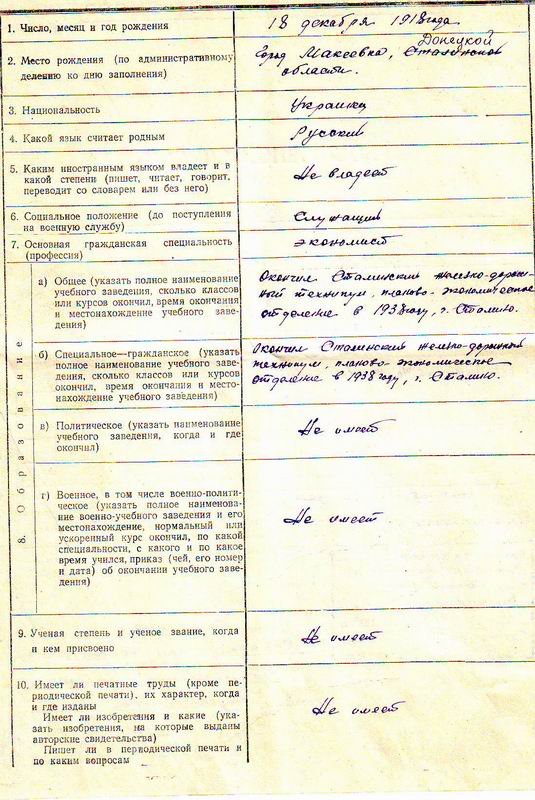 1. Число, месяц и год рождения
18 декабря 1918 года
2. Место рождения (по административному
делению ко дню заполнения)
Донецкой
Город Макеевка, Сталинской
области.
3. Национальность
Украинец
4. Какой язык считает родным
Русский
5. Каким иностранным языком владеет и в
какой степени (пишет, читает, говорит,
переводит со словарем или без него)
Не владеет
6. Социальное положение (до поступления
на военную службу)
Служащий
7. Основная гражданская специальность
(профессия)
экономист
8. Образование
а) Общее (указать полное наименование
учебного заведения, сколько классов
или курсов окончил, время окончания
и местонахождение учебного заве-
дения)
Окончил Сталинский железно-дорож-
ный техникум, планово-экономическое
отделение в 1938 году, г. Сталино.
б) Специальное—гражданское (указать
полное наименование учебного заве-
дения, сколько классов или курсов
окончил, время окончания и место-
нахождение учебного заведения)
Окончил Сталинский железно-дорожный
техникум, планово-экономическое
отделение в 1938 году, г. Сталино.
в) Политическое (указать наименование
учебного заведения, когда и где
окончил)
Не имеет
г) Военное, в том числе военно-полити-
ческое (указать полное наименова-
ние военно-учебного заведения и его
местонахождение, нормальный или
ускоренный курс окончил, по какой
специальности, с какого и по какое
время учился, приказ (чей, его номер
и дата) об окончании учебного заве-
дения)
Не имеет
9. Ученая степень и ученое звание, когда
и кем присвоено
Не имеет
10. Имеет ли печатные труды (кроме пе-
риодической печати), их характер, когда
и где изданы
Имеет ли изобретения и какие (ука-
зать изобретения, на которые выданы
авторские свидетельства)
Пишет ли в периодической печати и
по каким вопросам
Не имеет